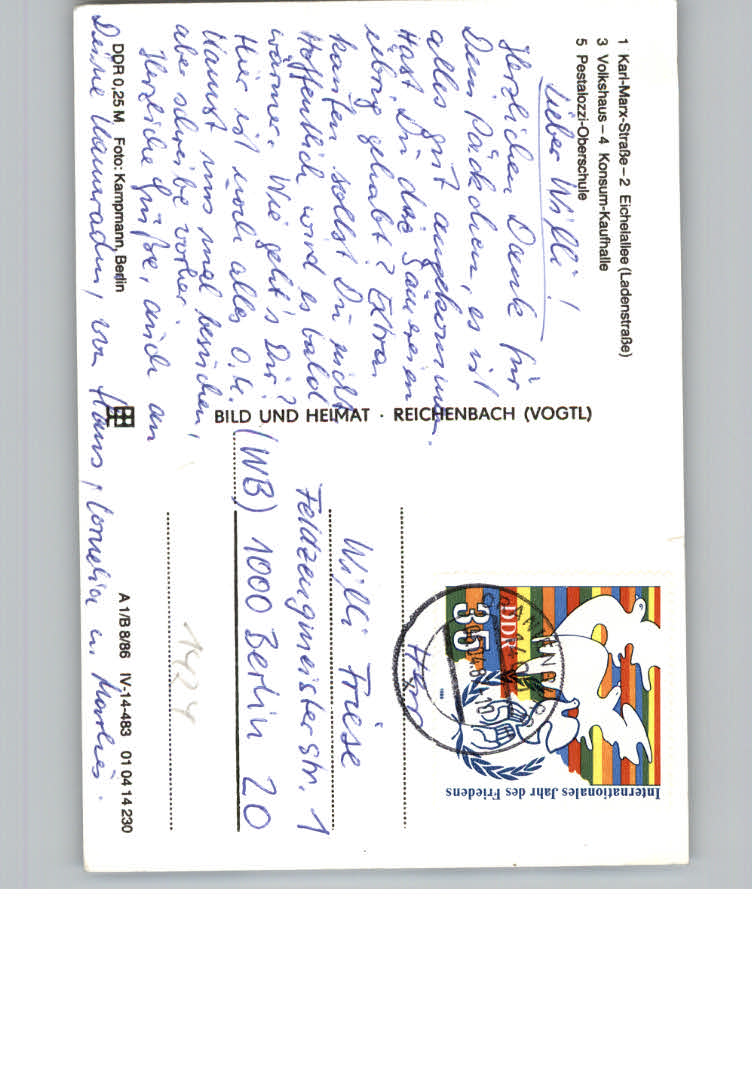 1 Karl-Marx-Straße – 2 Eichelallee (Ladenstraße)
3 Volkshaus – 4 Konsum-Kaufhalle
5 Pestalozzi-Oberschule
Lieber Willi!
Herzlichen Dank für
Dein Päckchen, es ist
alles gut angekommen.
Hast Du die
übrig gehabt? Extra
kaufen sollst Du nicht
Hoffentlich wird es bald
wärmer. Wie geht's Dir?
Hier ist noch alles O.K.
Kannst uns mal besuchen,
aber schreibe vorher
Herzliche Grüße, auch an
Deine Kameradin, von Hans, Cornelia u. Marlies.
DDR 0,25 M Foto: Kampmann, Berlin
BILD UND HEIMAT · REICHENBACH (VOGTL)
A 1/B 8/86 IV-14-483 01 04 14 230
Internationales Jahr des Friedens
DDR
35
Herrn
Willi Friese
Feldzeugmeisterstr. 1
(WB) 1000 Berlin 20
1424